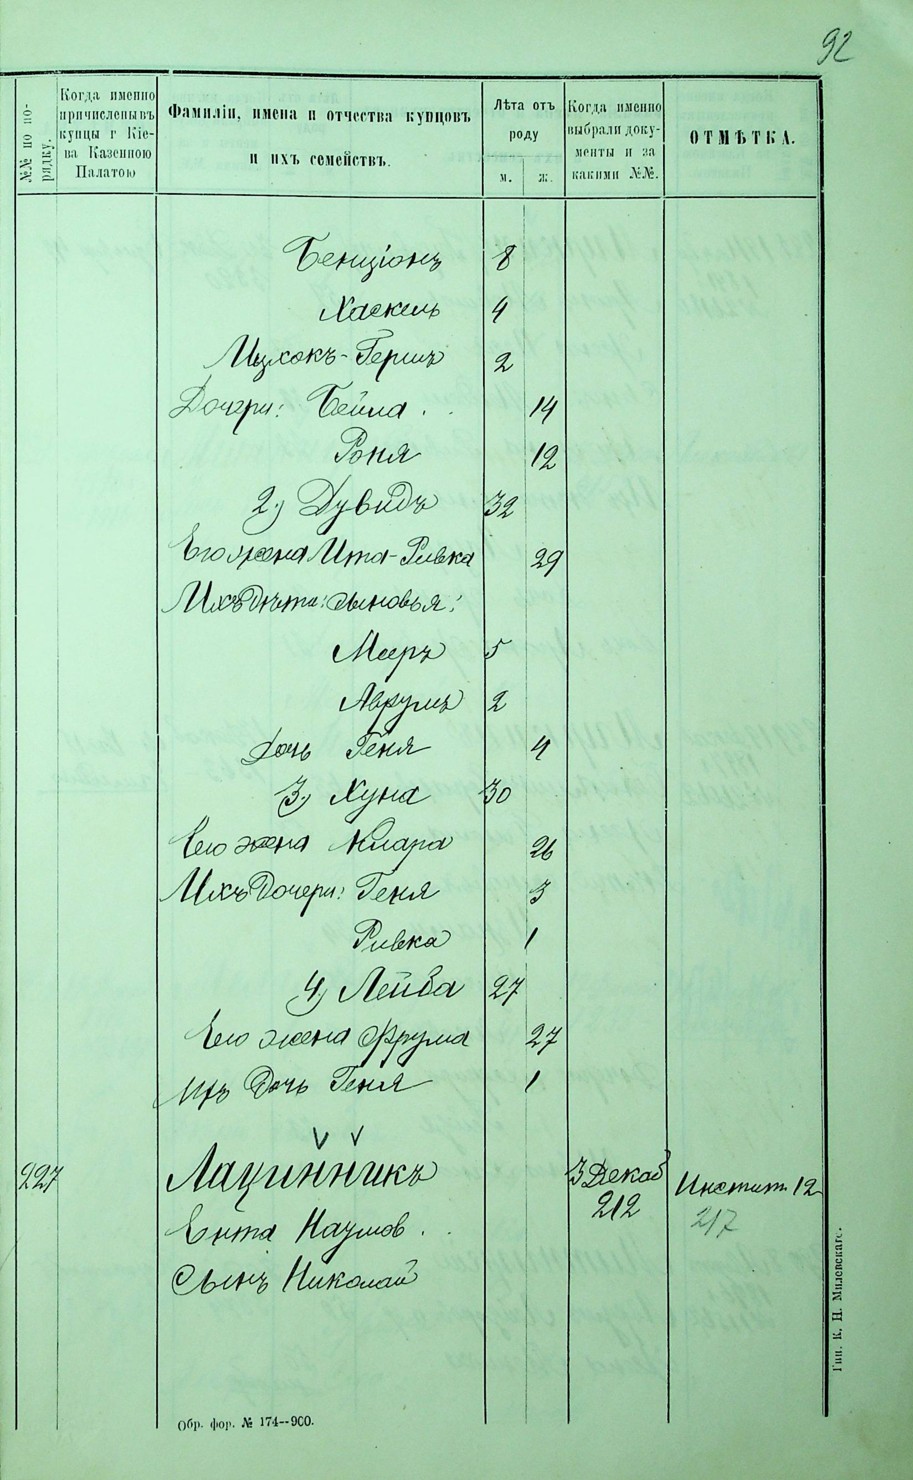 92
№№ по по-
рядку.
Когда именно
причислены въ
купцы г Кіе-
ва Казенною
Палатою
Фамиліи, имена и отчества купцовъ
и ихъ семействъ.
Лѣта отъ
роду
м. ж.
Когда именно
выбрали доку-
менты и за
какими №№.
ОТМѢТКА.
Бенціонъ 8
Хаскель 4
Ицхокъ-Гершъ 2
Дочери: Бейла . . 14
Роня 12
2) Дувидъ 32
Его жена Ита-Ривка 29
Ихъ дѣти: сыновья:
Меръ 5
Аврумъ 2
Дочь Геня 4
3) Хуна 30
Его жена Клара 26
Ихъ дочери: Геня 3
Ривка 1
4) Лейба 27
Его жена Фрума 27
Ихъ дочь Геня 1
227 Лацинникъ 3 Декаб Инстит. 12
212 217
Ента Наумов . .
Сынъ Николай
Обр. фор. № 174--900.
Тип. К. Н. Милевскаго.